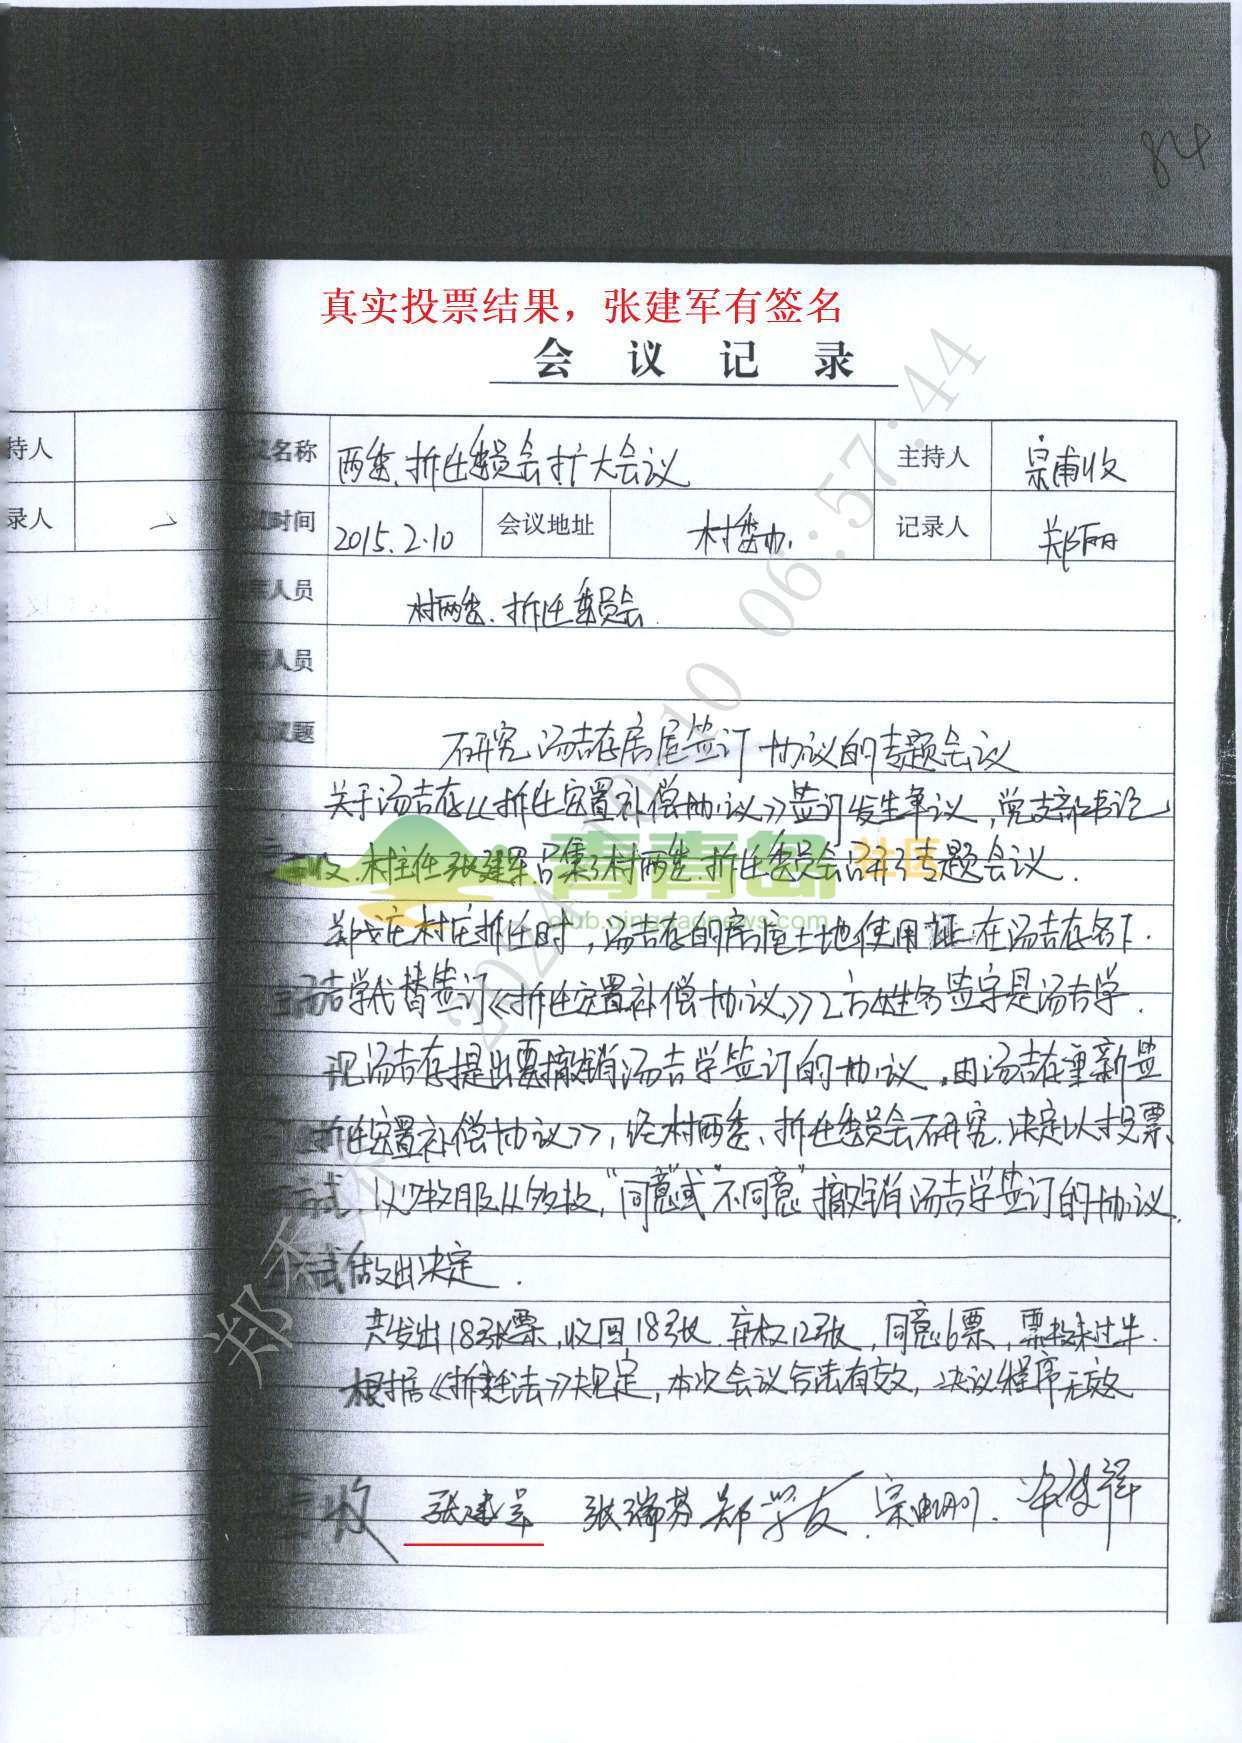 84
真实投票结果，张建军有签名
会 议 记 录
持人 名称 两委、拆迁委员会扩大会议 主持人 宗甫收
录人 时间 2015.2.10 会议地址 村委办. 记录人 郑丽
人员 村两委、拆迁委员会.
人员
题 研究汤吉存房屋签订协议的专题会议
关于汤吉存《拆迁安置补偿协议》签订发生争议，党支部书记
收、村主任张建军召集了村两委、拆迁委员会召开了专题会议.
青青岛 社区
club.qingdaonews.com
郑戈庄村庄拆迁时，汤吉存的房屋土地使用证在汤吉存名下.
汤吉学代替签订《拆迁安置补偿协议》乙方姓名签字是汤吉学.
现汤吉存提出要撤销汤吉学签订的协议，由汤吉存重新签
拆迁安置补偿协议》，经村两委、拆迁委员会研究，决定以投票
式，以少数服从多数，“同意”或“不同意”撤销汤吉学签订的协议，
式做出决定.
共发出18张票，收回18张，弃权12张，同意6票，票数未过半.
根据《拆迁法》规定，本次会议合法有效，决议程序无效
收 张建军 张瑞芬 郑学友
06:57:44